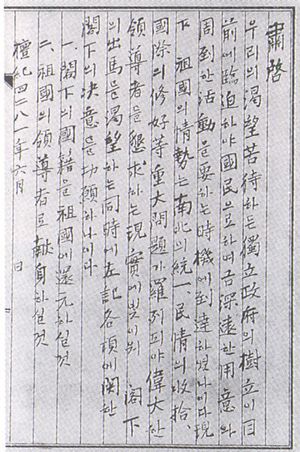 肅啓
우리의 渴望苦待하든 獨立政府의 樹立이 目
前에 臨迫하야 國民으로하여금 深遠한 用意와
周到한 活動을 要하는 時機에 到達하엿나이다 現
下 祖國의 情勢는 南北의 統一, 民情의 收拾,
國際의 修好等 重大問題가 羅列되야 偉大한
領導者를 懇求하는 現實에 빗이워 閣下
의 出馬를 渴望하는 同時에 左記 各項에 關한
閣下의 決意를 切願하나이다
一. 閣下의 國籍을 祖國에 還元하실것
二. 祖國의 領導者로 獻身하실것
檀紀四二八一年 六月 日